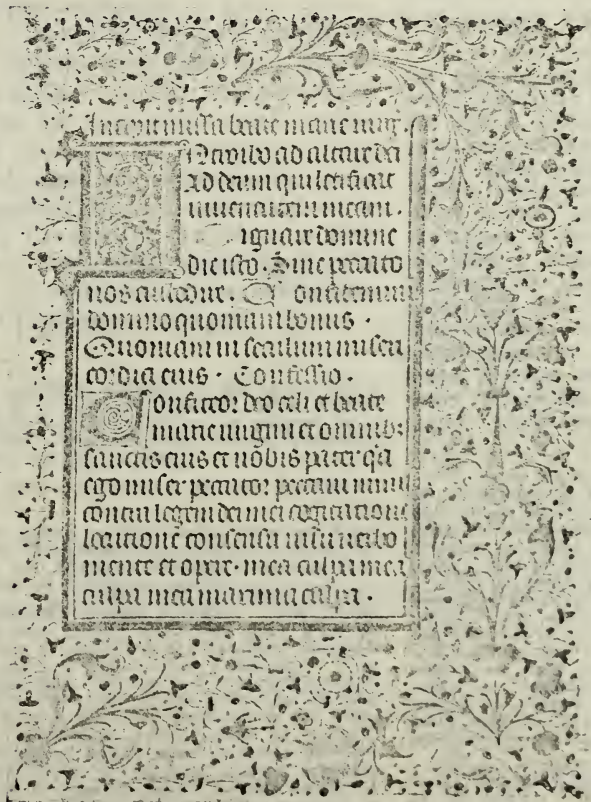 Incipit missa beate marie uirg̃.
Introibo ad altare dei
Ad deum qui letificat
iuuentutem meam.
ignare domine
die isto. Sine peccato
nos custodire. Confitemini
domino quoniam bonus.
Quoniam in seculum miseri
cordia eius. Confessio.
Confiteor deo celi et beate
marie uirgini et omnib:
sanctis eius et uobis pater q̃a
ego miser peccator peccaui nimis
contra legem dei mei cogitatione
locutione consensu uisu uerbo
mente et opere. mea culpa mea
culpa mea maxima culpa.